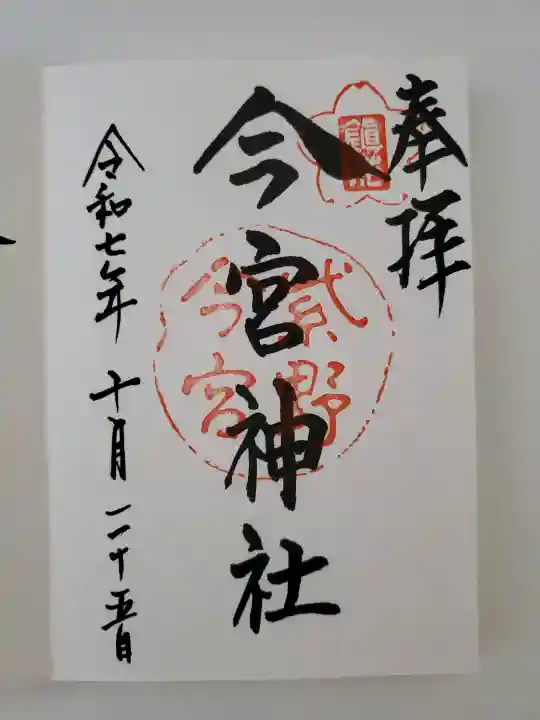 奉拝
今宮神社
令和七年 十月 二十五日
紫野
今宮